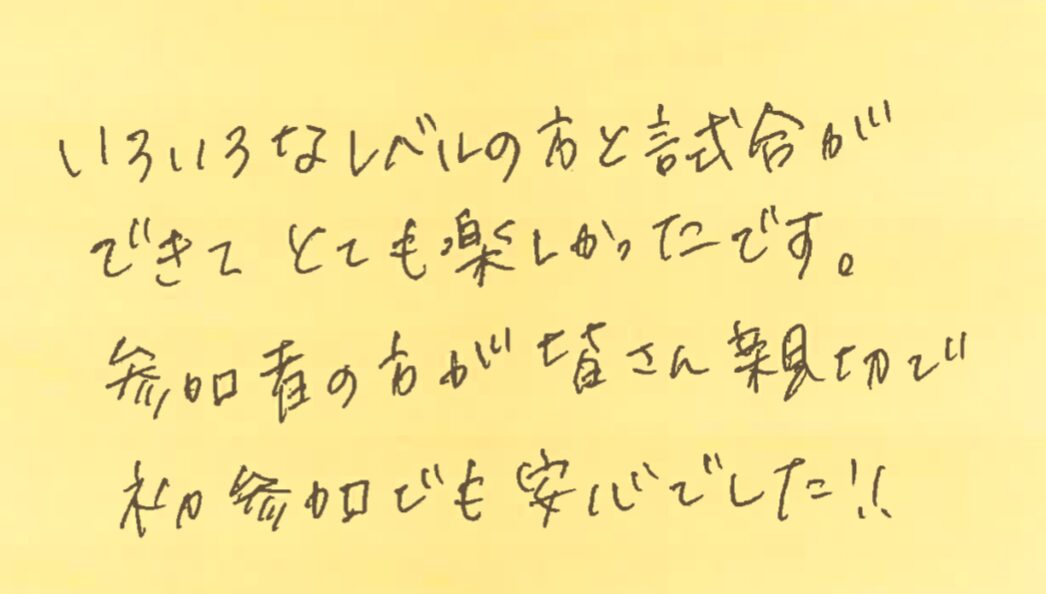 いろいろなレベルの方と試合が
できて とても楽しかったです。
参加者の方が皆さん親切で
初参加でも安心でした!!